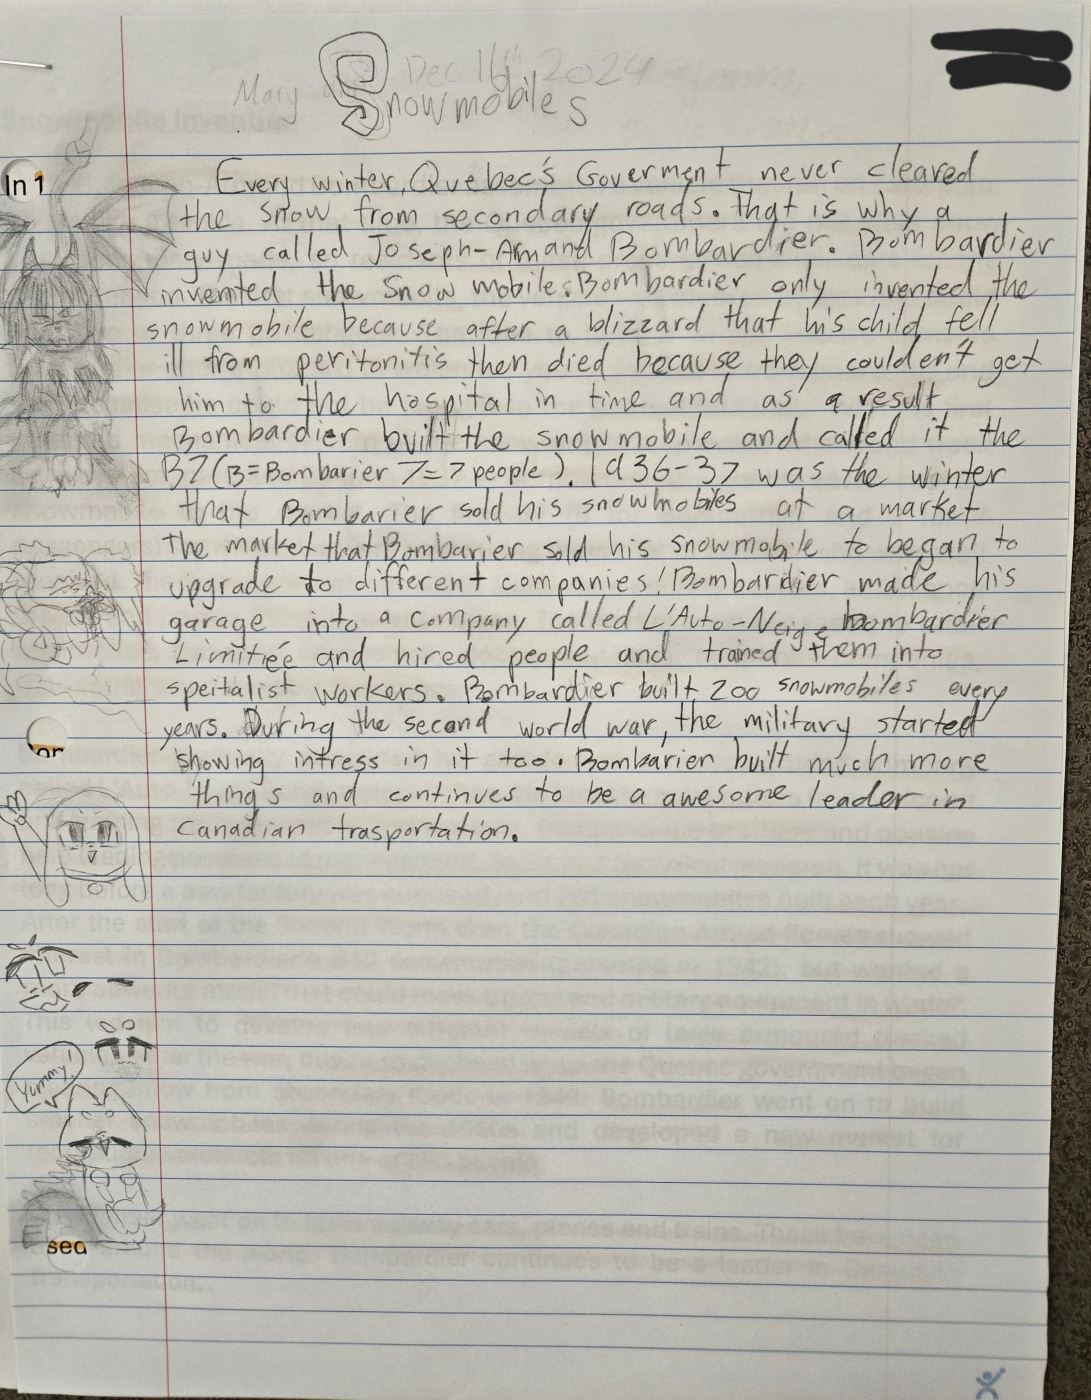 Dec 11th 2024
Mary
Snowmobiles
In 1
Every winter, Quebec's Goverment never cleared
the snow from secondary roads. That is why a
guy called Joseph-Armand Bombardier. Bombardier
invented the Snow mobile. Bombardier only invented the
snowmobile because after a blizzard that his child fell
ill from peritonitis then died because they couldent get
him to the hospital in time and as a result
Bombardier built the snowmobile and called it the
B7 (B=Bombarier 7=7 people). 1936-37 was the winter
that Bombarier sold his snowmobiles at a market
The market that Bombarier sold his snowmobile to began to
upgrade to different companies! Bombardier made his
garage into a company called L'Auto-Neige bombardier
Limitée and hired people and trained them into
speitalist workers. Bombardier built 200 snowmobiles every
years. During the second world war, the military started
showing intress in it too. Bombarier built much more
things and continues to be a awesome leader in
Canadian trasportation.
Yummy!
sed